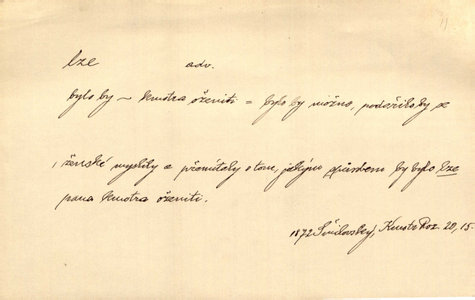 lze adv.
bylo by ~ kmotra oženiti = bylo by možno, podařilo by se
ženské myslily a přemítaly o tom, jakým způsobem by bylo lze
pana kmotra oženiti.
1872 Šmilovský, Kmotr Roz. 20, 15.